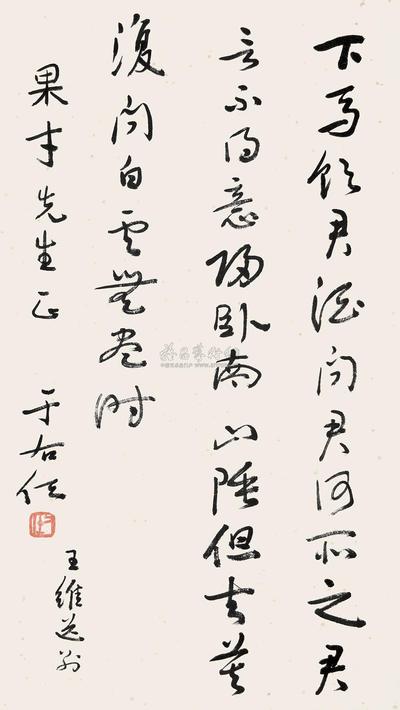 下馬飲君酒問君何所之君
言不得意歸臥南山陲但去莫
復問白雲無盡時
果才先生正
于右任
王維送別